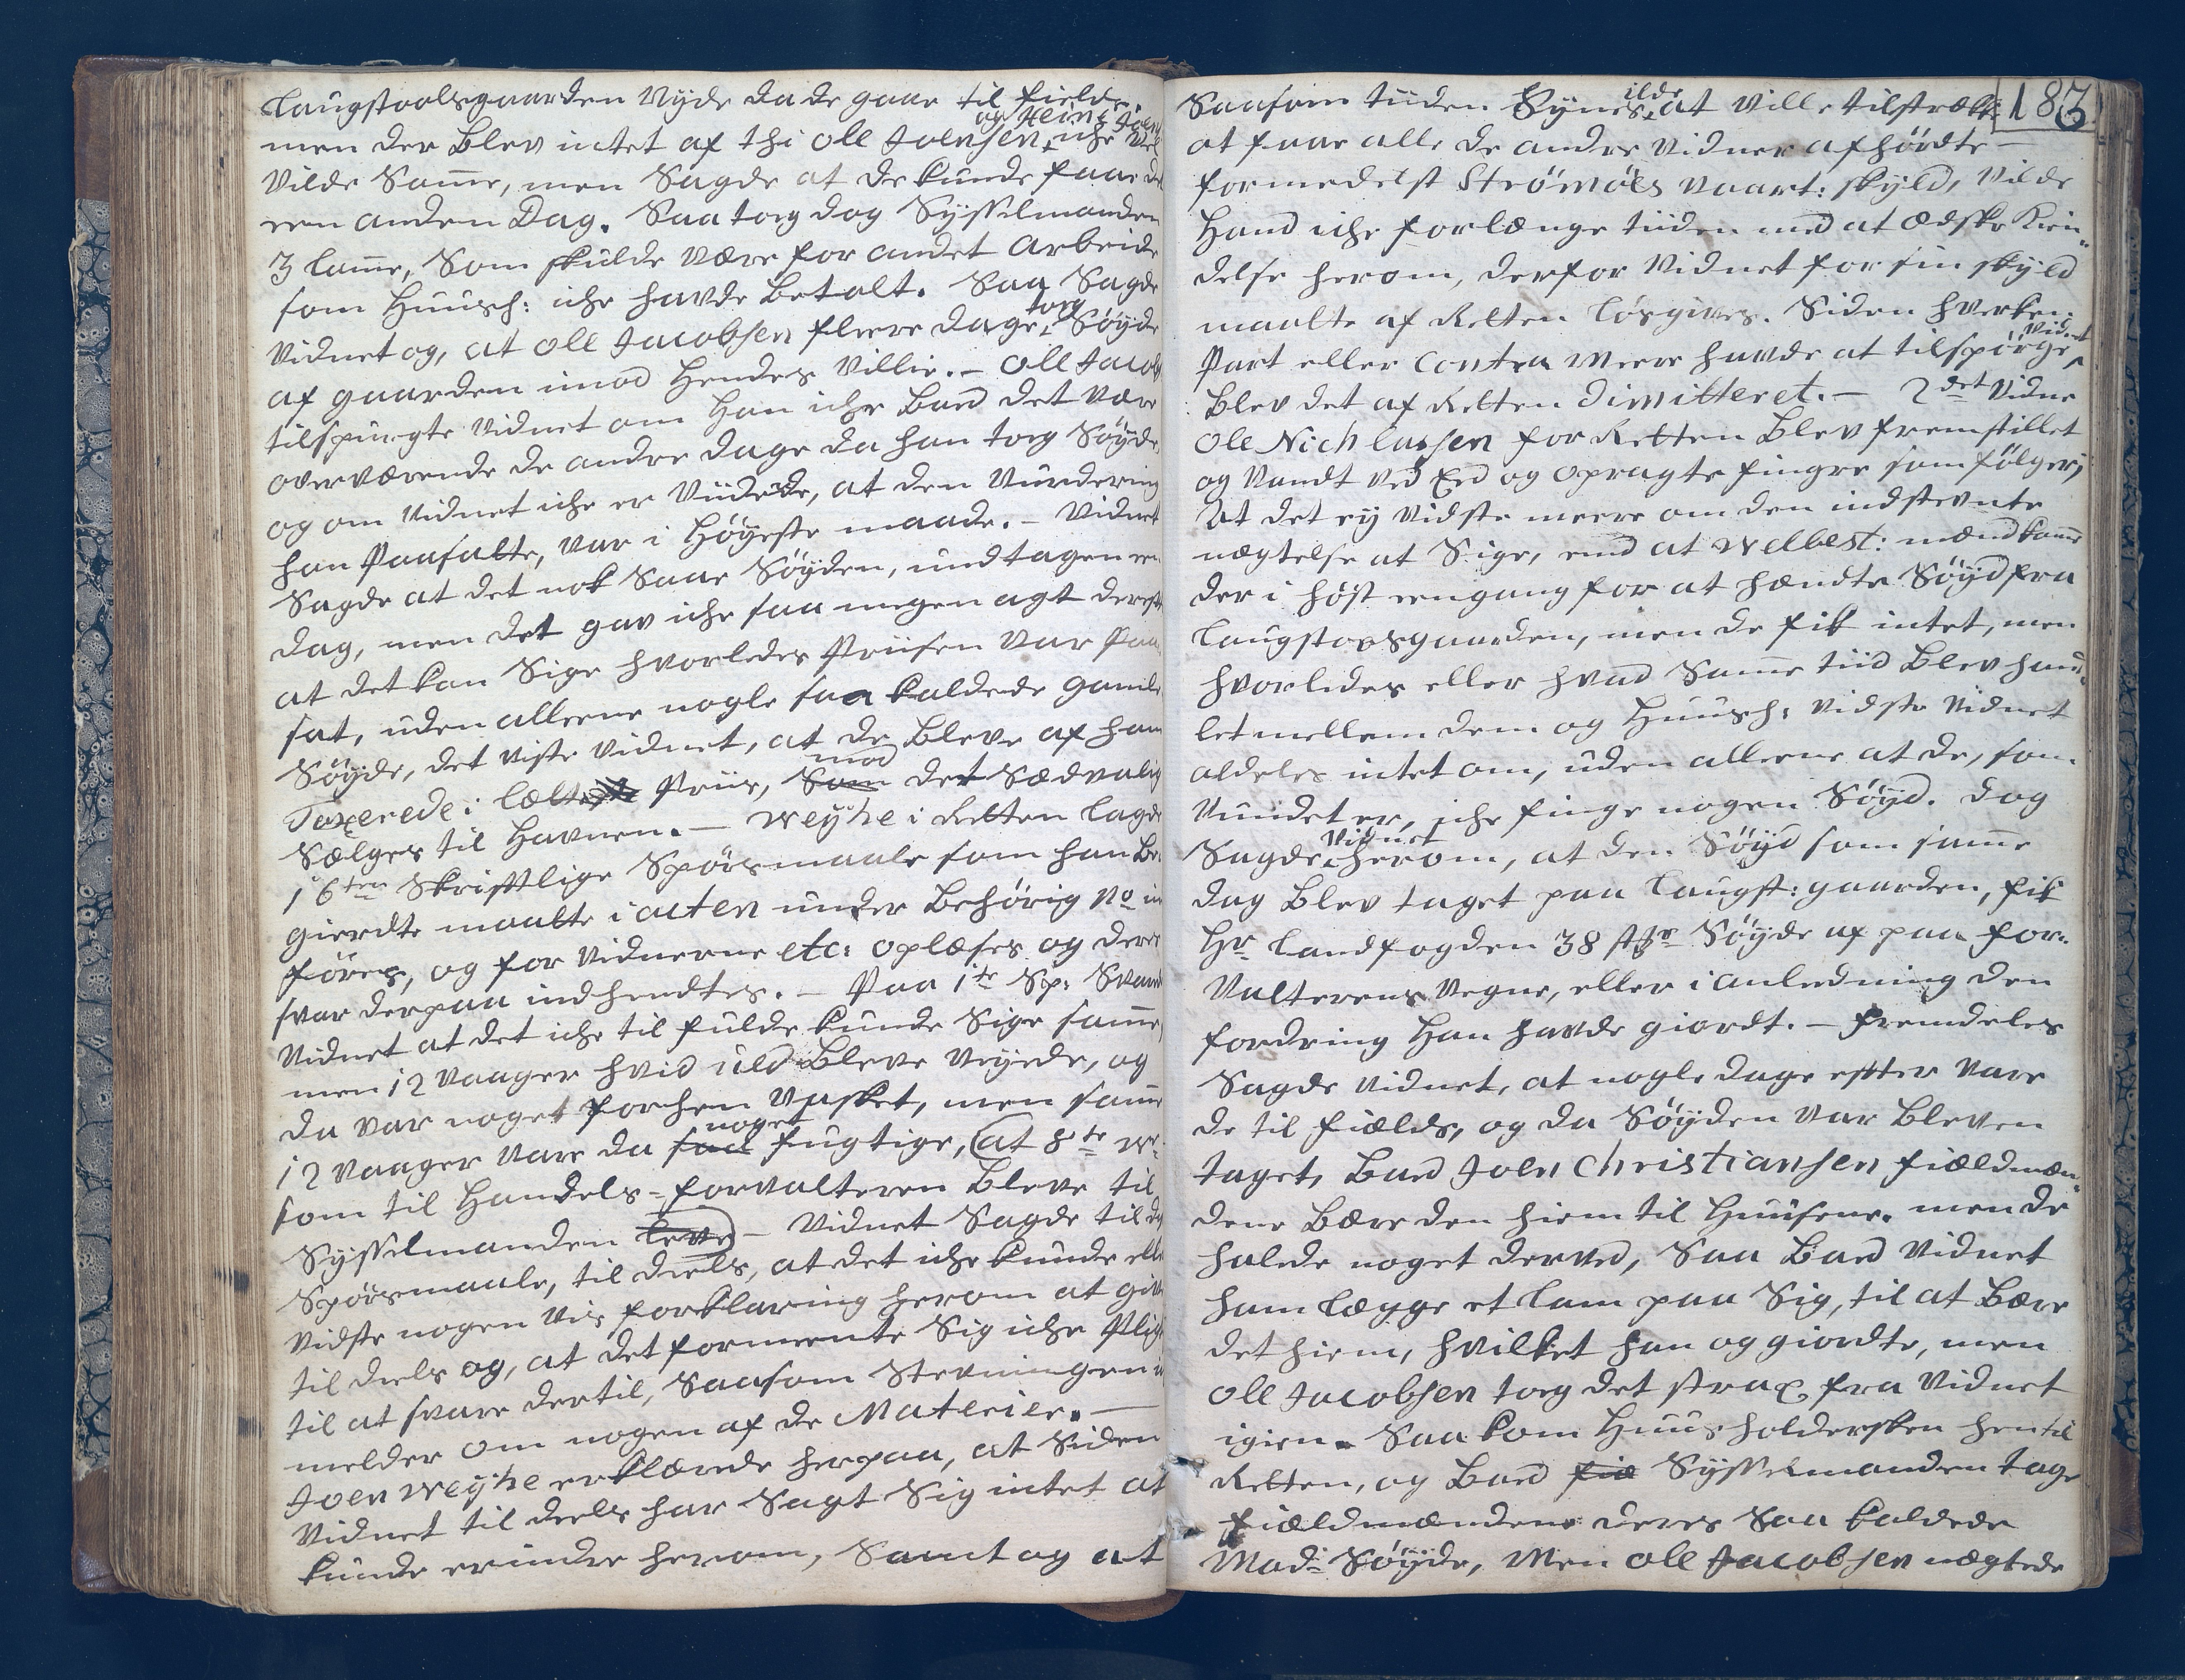 Laugstoelsgaarden Nyde da de gaar til Fields.
men der blev intet af thi Ole Joensen og Heine Joens: iche vel
vilde Samme, men Sagde at de kunde faae det
een anden Dag. Saa tog dog Sysselmanden
3 Lame, Som skulde være for andet Arbeide
som Huush: iche havde betalt. Saa Sagde
Vidnet og, at Ole Jacobsen fleere dage tog Søyde
af gaarden imod Hendes Villie. - Ole Jacobs
tilspurgte Vidnet om Han iche bad det være
overværende de andre dage da han tog Søyde,
og om Vidnet iche er Viidede, at den Vurdering
han Paasatte, var i Høyeste maade. - Vidnet
Sagde at det nok Saae Søyden, undtagen en
dag, men det gav iche saa megen agt derefter
at det kan Sige hvorledes Priisen var Paa
sat, uden alleene nogle saa kaldede Gamle
Søyde, det viste Vidnet, at de bleve af ham
Taxerede i lætte Priis, mod det Sædvalig
Sælges til Havnen. - Weyhe i Retten lagde
16ten Skriftlige Spørsmaale som han be
gierdte maatte i acten under Behørig No in
føres, og for Vidnerne etc: oplæses og deres
svar derpaa indhendtes. - Paa 1te Sp: Svarede
Vidnet at det iche til fulde kunde Sige samme,
men 12 Vaager hvid uld bleve veyede, og
da var noget forhen vasket, men samme
12 Vaager vare da noget fugtige, (at 8te Wr.
som til Handels-forvalteren bleve til
Sysselmanden leve) - Vidnet Sagde til de
Spørsmaale, til deels, at det iche kunde eller
vidste nogen vis forklaring herom at give
til deels og, at det formeente Sig iche Pligtig
til at svare dertil, Saasom Stevningen ei
melder om nogen af de Materier. -
Joen Weyhe erklærede herpaa, at Siden
Vidnet til deels har Sagt Sig intet at
kunde erindre herom, Samt og at
183
Saasom tiiden Synes ilde at ville tilstrække
at faae alle de andre Vidner afhørdte -
formedelst Strømøls Vaart: skyld, vilde
Hand iche forlænge tiiden med at ædske Kien-
delse herom, derfor Vidnet for sin skyld
maatte af Retten løsgives. Siden hverken
Part eller Contra meere havde at tilspørge Vidnet,
blev det af Retten Dimitteret. - 2det Vidne
Ole Nichlassen for Retten blev fremstillet
og Vandt ved Eed og opragte fingre som følger,
At det ey vidste meere om den indstevnte
nægtelse at Sige, end at Welbest: mænd komme
der i høst eengang for at hændte Søyd fra
Laugstoelsgaarden, men de fik intet, men
hvorledes eller hvad Samme tiid blev hand-
let mellem dem og Huush: vidste Vidnet
aldeles intet om, uden alleene at de, som
Vundet er, iche finge nogen Søyd. dog
Sagde Vidnet herom, at den Søyd som samme
dag blev taget paa Laugst: gaarden, fik
Hr Landfogden 38 stkr Søyde af paa For-
valterens Vegne, eller i anledning den
fordring Han havde giordt. - Fremdeles
Sagde Vidnet, at nogle dage efter vare
de til Fields, og da Søyden var bleven
taget, bad Joen Christiansen Fieldmæn-
dene bære den hiem til Huusene. men de
halede noget derved, Saa bad Vidnet
ham lægge et Lam paa Sig, til at bære
det hiem, hvilket han og giordte, men
Ole Jacobsen tog det strax fra Vidnet
igien. Saa kom Huusholdersken hen til
Retten, og bad fie Sysselmanden tage
Fieldmændene deres Saa kaldede
Mad-Søyde, Men Ole Jacobsen nægtede